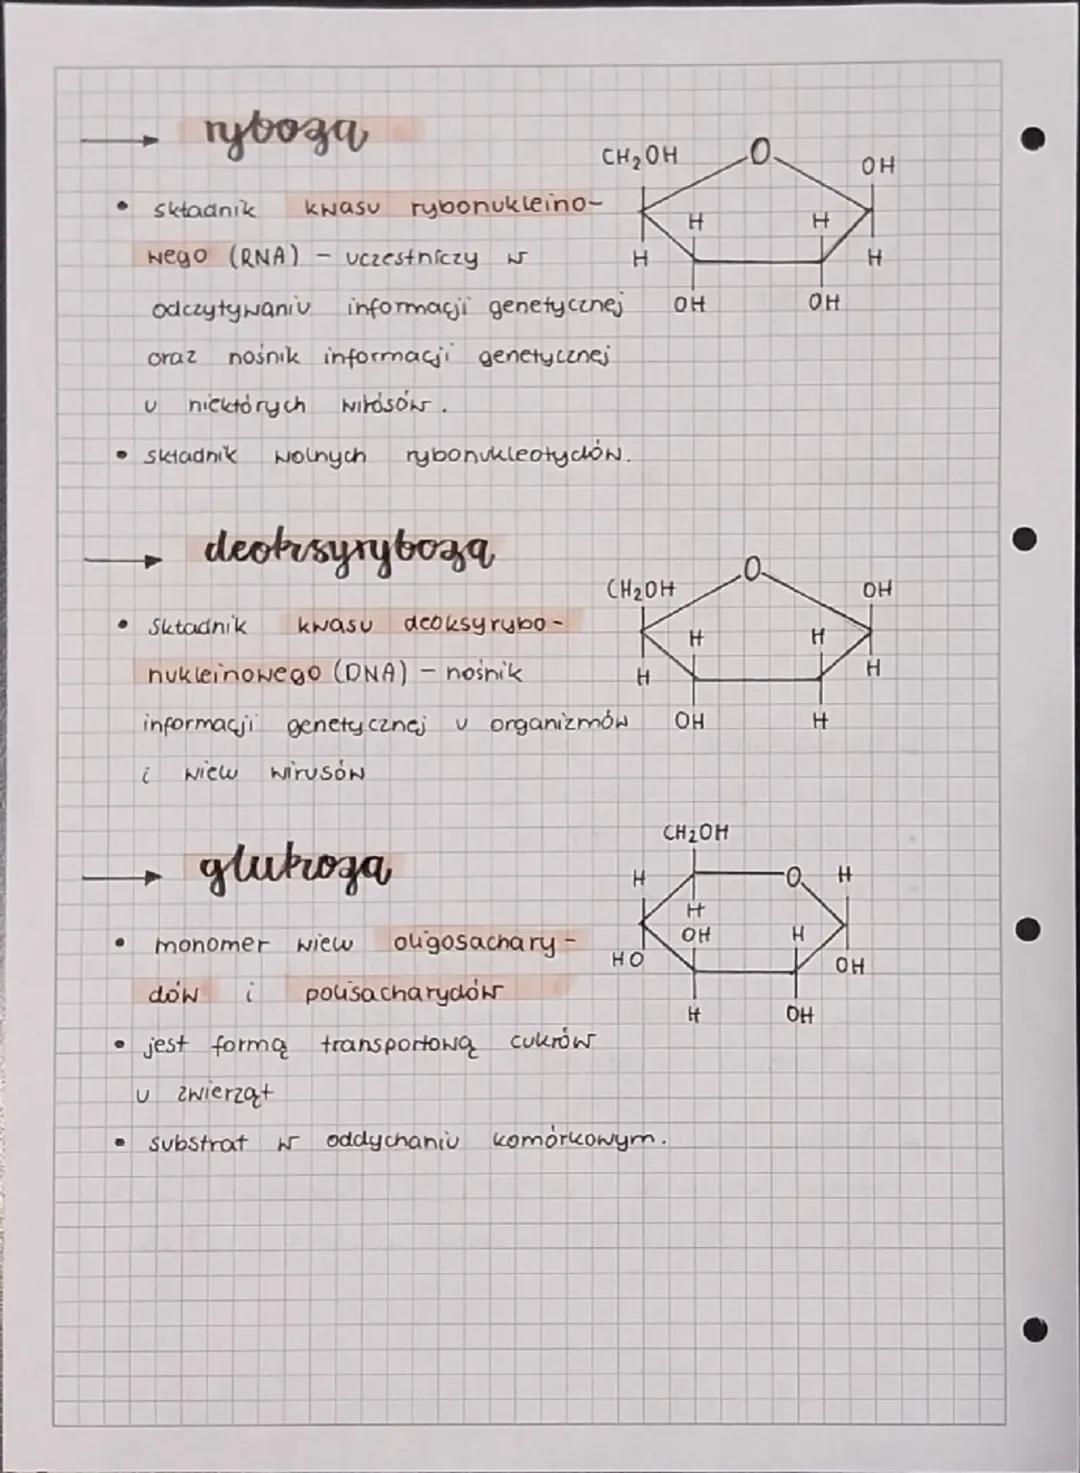 → ryboza
• składnik kwasu rybonukleino-
wego (RNA) – uczestniczy w
odczytywaniu informacji genetycznej
oraz nośnik informacji genetycznej
u niektórych wirusów.
• składnik wolnych rybonukleotydów.
CH₂OH O OH
H H
H H
OH OH
→ deoksyryboza
• składnik kwasu deoksyrybo-
nukleinowego (DNA) – nośnik
informacji genetycznej u organizmów
i wielu wirusów
CH₂OH O OH
H H
H H
OH H
→ glukoza
• monomer wielu oligosachary-
dów i polisacharydów
• jest formą transportową cukrów
u zwierząt
• substrat w oddychaniu komórkowym.
CH₂OH
H O H
H
OH H
HO OH
H OH